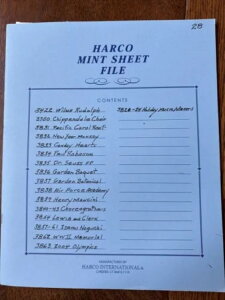 28
HARCO
MINT SHEET
FILE
CONTENTS
3422 Wilma Rudolph
3750 Chippendale Chair
3831 Pacific Coral Reef
3832 New Year Monkey
3833 Candy Hearts
3834 Paul Robeson
3835 Dr. Seuss
3836 Garden Boquet
3837 Garden Botanical
3838 Air Force Academy
3839 Henry Mancini
3840-43 Choreographers
3854 Lewis and Clark
3857-61 Isamu Noguchi
3862 WWII Memorial
3863 2004 Olympics
3828- Holiday Music Makers
MANUFACTURED BY
HARCO INTERNATIONAL